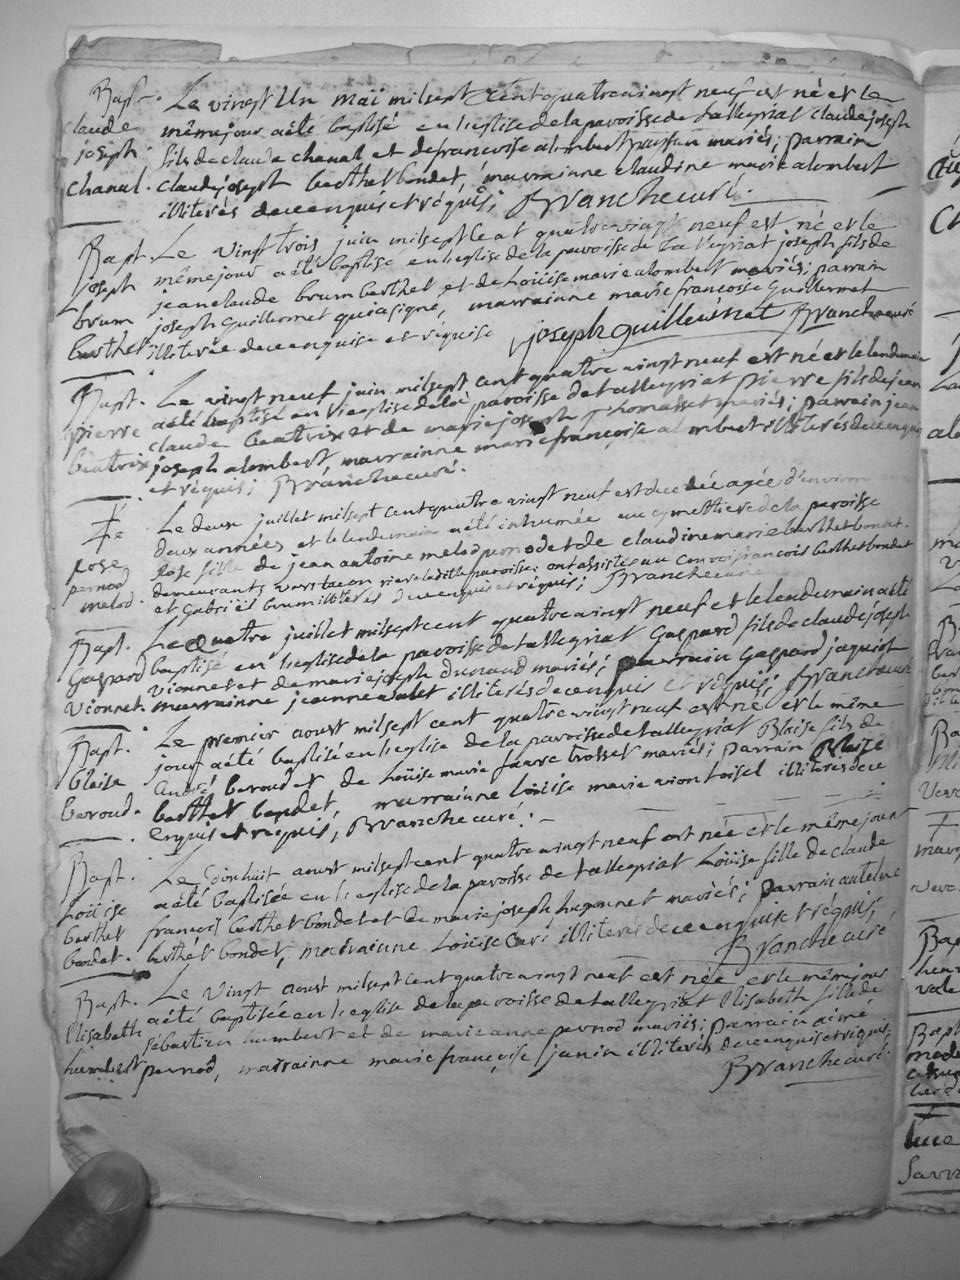 Bapt. Le vingt Un mai mil sept cent quatre vingt neuf est né et le
claude même jour a été baptisé en l'eglise de la paroisse de tallegriat claude joseph
joseph fils de claude chanal et de francoise alombert mariés; parrain
chanal. claude joseph berthet bondet, marrainne claudine marie alombert
illiterés de ce enquis et réquis; Branche curé.
Bapt. Le vingt trois juin mil sept cent quatre vingt neuf est né et le
joseph même jour a été baptisé en l'eglise de la paroisse de tallegriat joseph fils de
brum jean claude brum berthet et de Loüise marie alombert mariés; parrain
berthet joseph Guillermet qui a signé, marrainne marie francoise Guillermet
illiterée de ce enquise et réquise joseph guillermet Branche curé
Bapt. Le vingt neuf juin mil sept cent quatre vingt neuf est né et le lendemain
pierre a été baptisé en l'eglise de la paroisse de tallegriat pierre fils de jean
béatrix claude béatrix et de marie joseph thomasset mariés; parrain jean
joseph alombert, marrainne marie françoise alombert illiterés de ce enquis
et réquis; Branche curé.
Le deux juillet mil sept cent quatre vingt neuf est decedée agée d'environ
deux années et le lendemain a été inhumée au cymettiere de la paroisse
Rose Rose fille de jean antoine melod pernod et de claudine marie berthet bondet
pernod demeurants riere la ditte paroisse; ont assistés au convoi francois berthet bondet
melod. et Gabriël brum illiterés de ce enquis et réquis; Branche curé
Bapt. Le quatre juillet mil sept cent quatre vingt neuf et le lendemain a été
Gaspard baptisé en l'eglise de la paroisse de tallegriat Gaspard fils de claude joseph
vionnet. vionnet et de marie joseph dunand mariés; parrain Gaspard jaquiot
marrainne jeanne valet illiterés de ce enquis et réquis; Branche curé
Bapt. Le premier aoust mil sept cent quatre vingt neuf est né et le même
blaise jour a été baptisé en l'eglise de la paroisse de tallegriat Blaise fils de
beroud. André beroud et de Loüise marie faure brosset mariés; parrain Blaise
berthet bondet, marrainne Loüise marie vion loisel illiterés de ce
enquis et requis; Branche curé.
Bapt. Le dixhuit aoust mil sept cent quatre vingt neuf est née et le même jour
Loüise a été baptisée en l'eglise de la paroisse de tallegriat Loüise fille de claude
berthet francois berthet bondet et de marie joseph hugonnet mariés; parrain antelme
bondet. berthet bondet, marrainne Loüise Curi illiterés de ce enquis et réquis;
Branche curé
Bapt. Le vingt aoust mil sept cent quatre vingt neuf est née et le même jour
Elisabeth a été baptisée en l'eglise de la paroisse de tallegriat Elisabeth fille de
humbert sébastien humbert et de marie anne pernod mariés; parrain aimé
pernod, marrainne marie françoise janin illiterés de ce enquis et réquis
Branche curé.